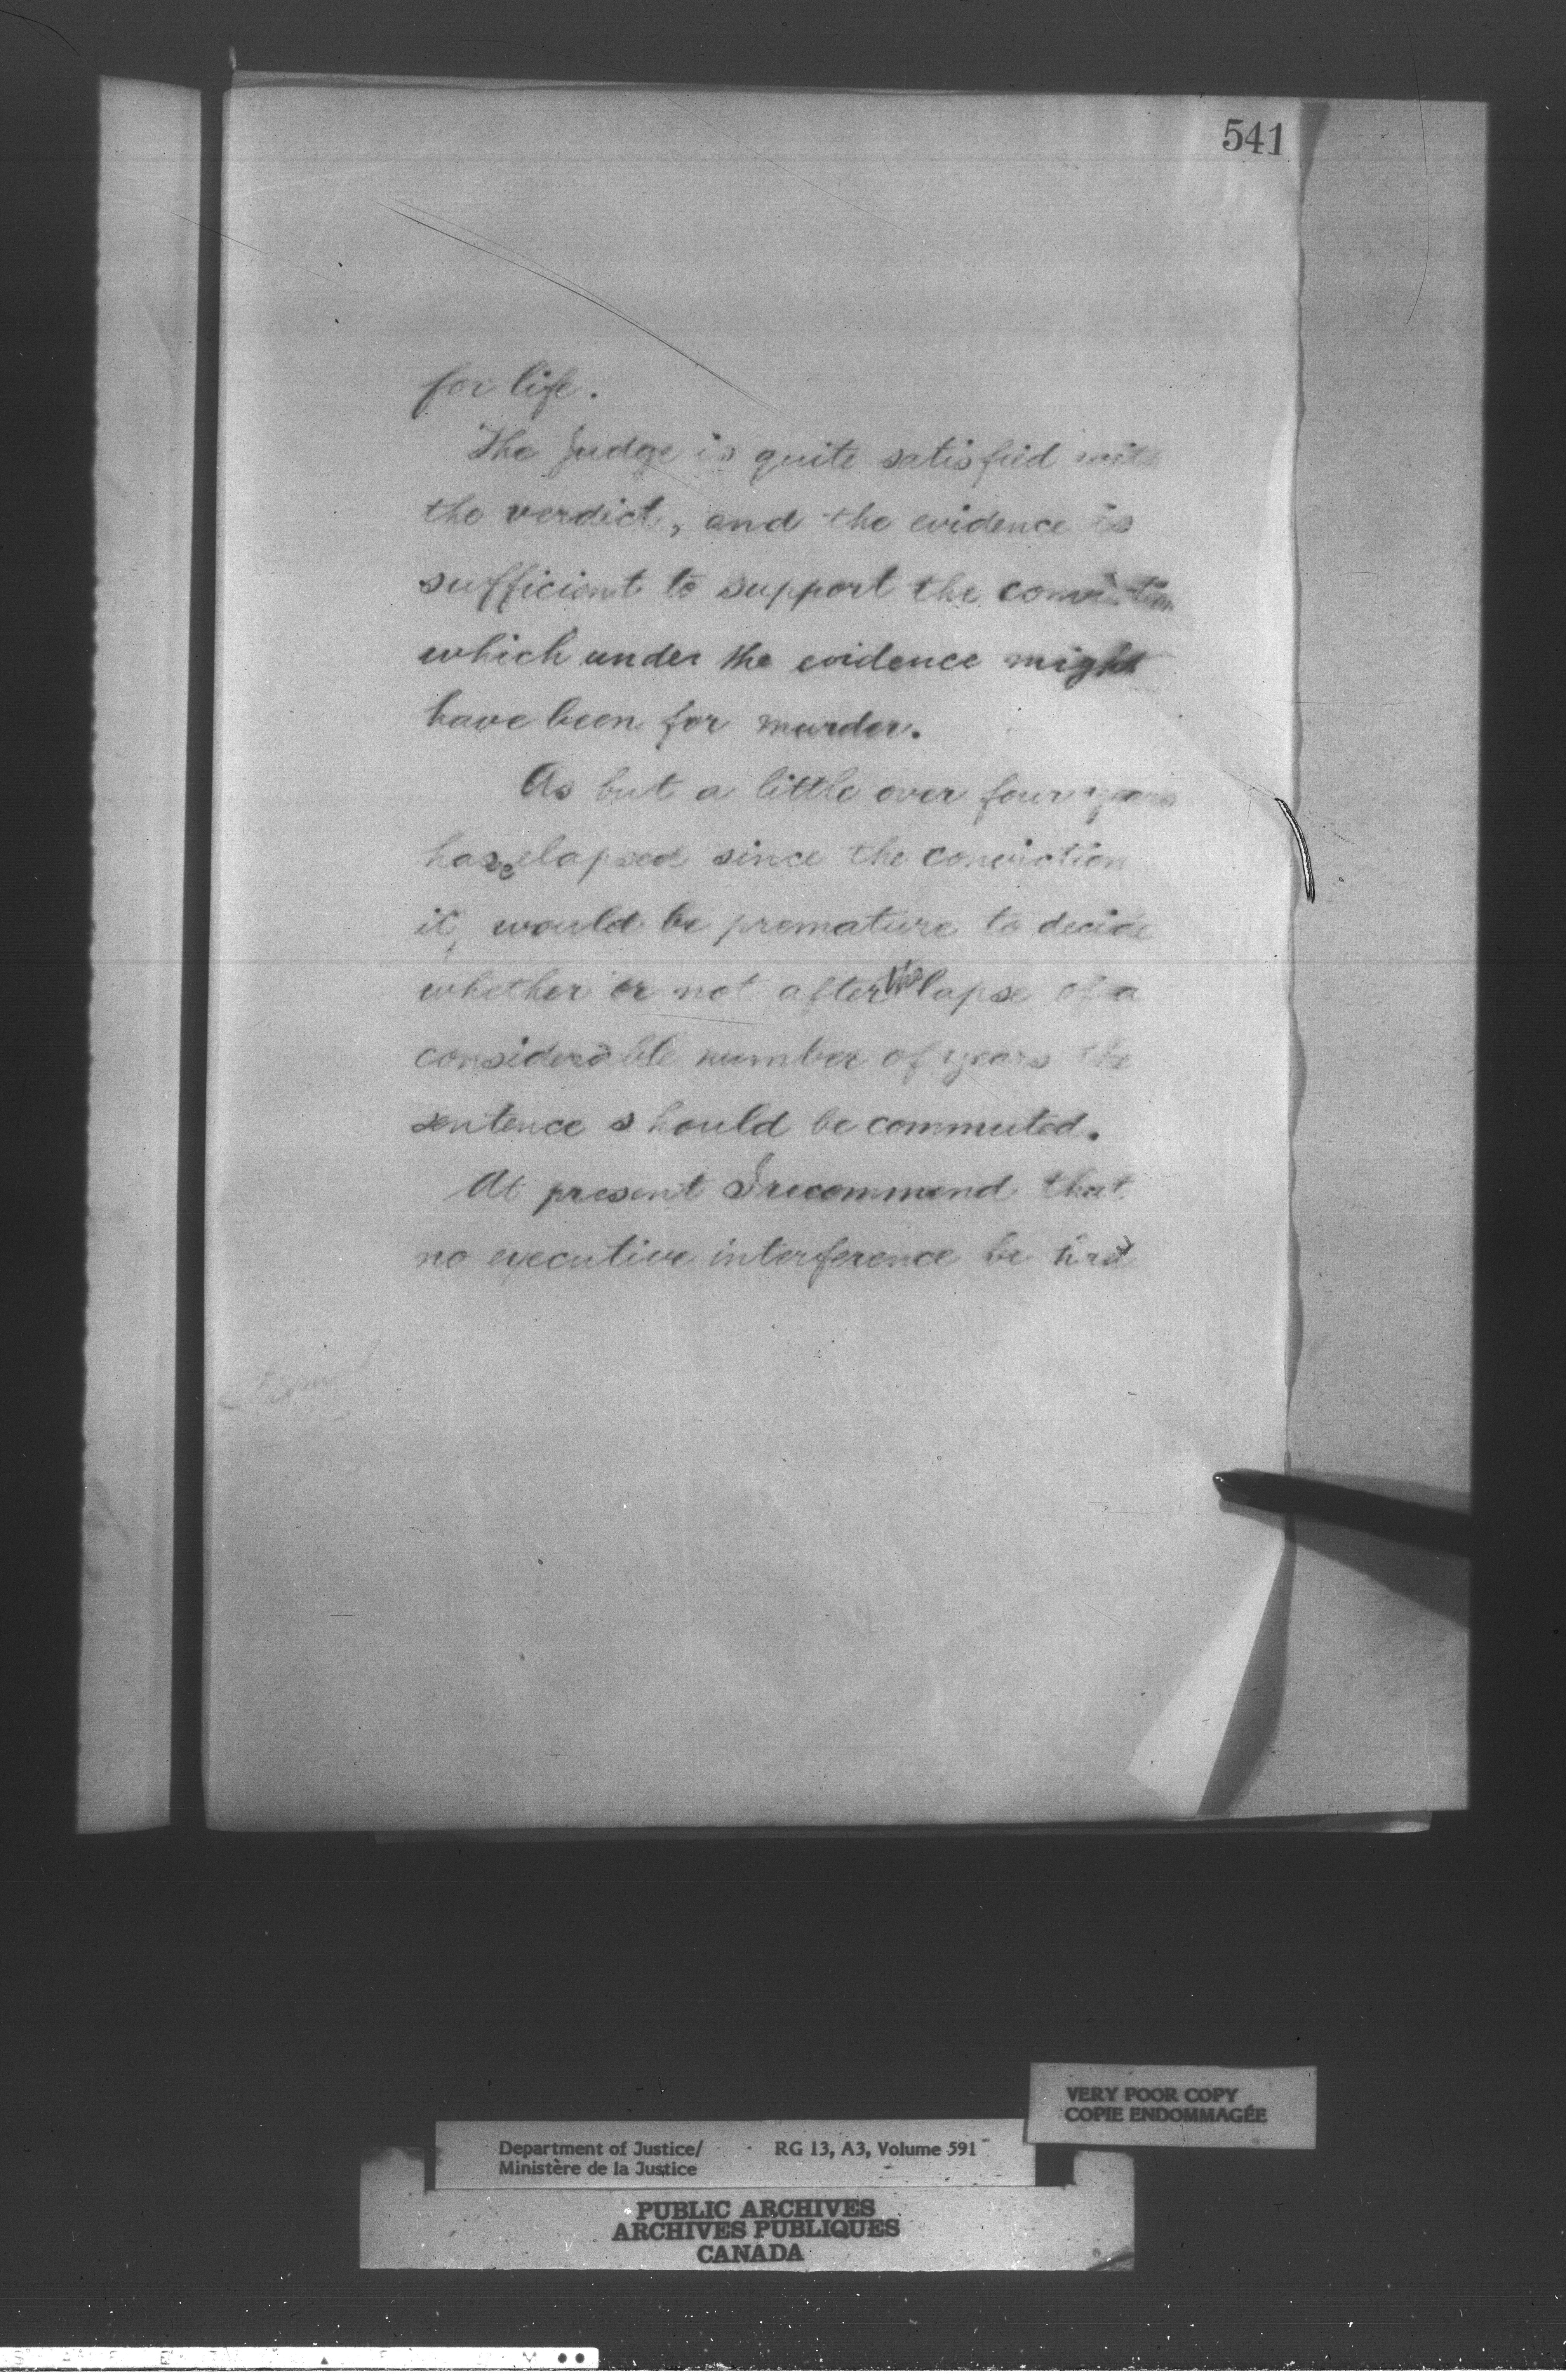 541
for life.
The Judge is quite satisfied with
the verdict, and the evidence is
sufficient to support the conviction
which under the evidence might
have been for murder.
As but a little over four years
have elapsed since the conviction
it, would be premature to decide
whether or not after the lapse of a
considerable number of years the
sentence should be commuted.
At present I recommend that
no executive interference be had
VERY POOR COPY
COPIE ENDOMMAGÉE
Department of Justice/ RG 13, A3, Volume 591
Ministère de la Justice
PUBLIC ARCHIVES
ARCHIVES PUBLIQUES
CANADA